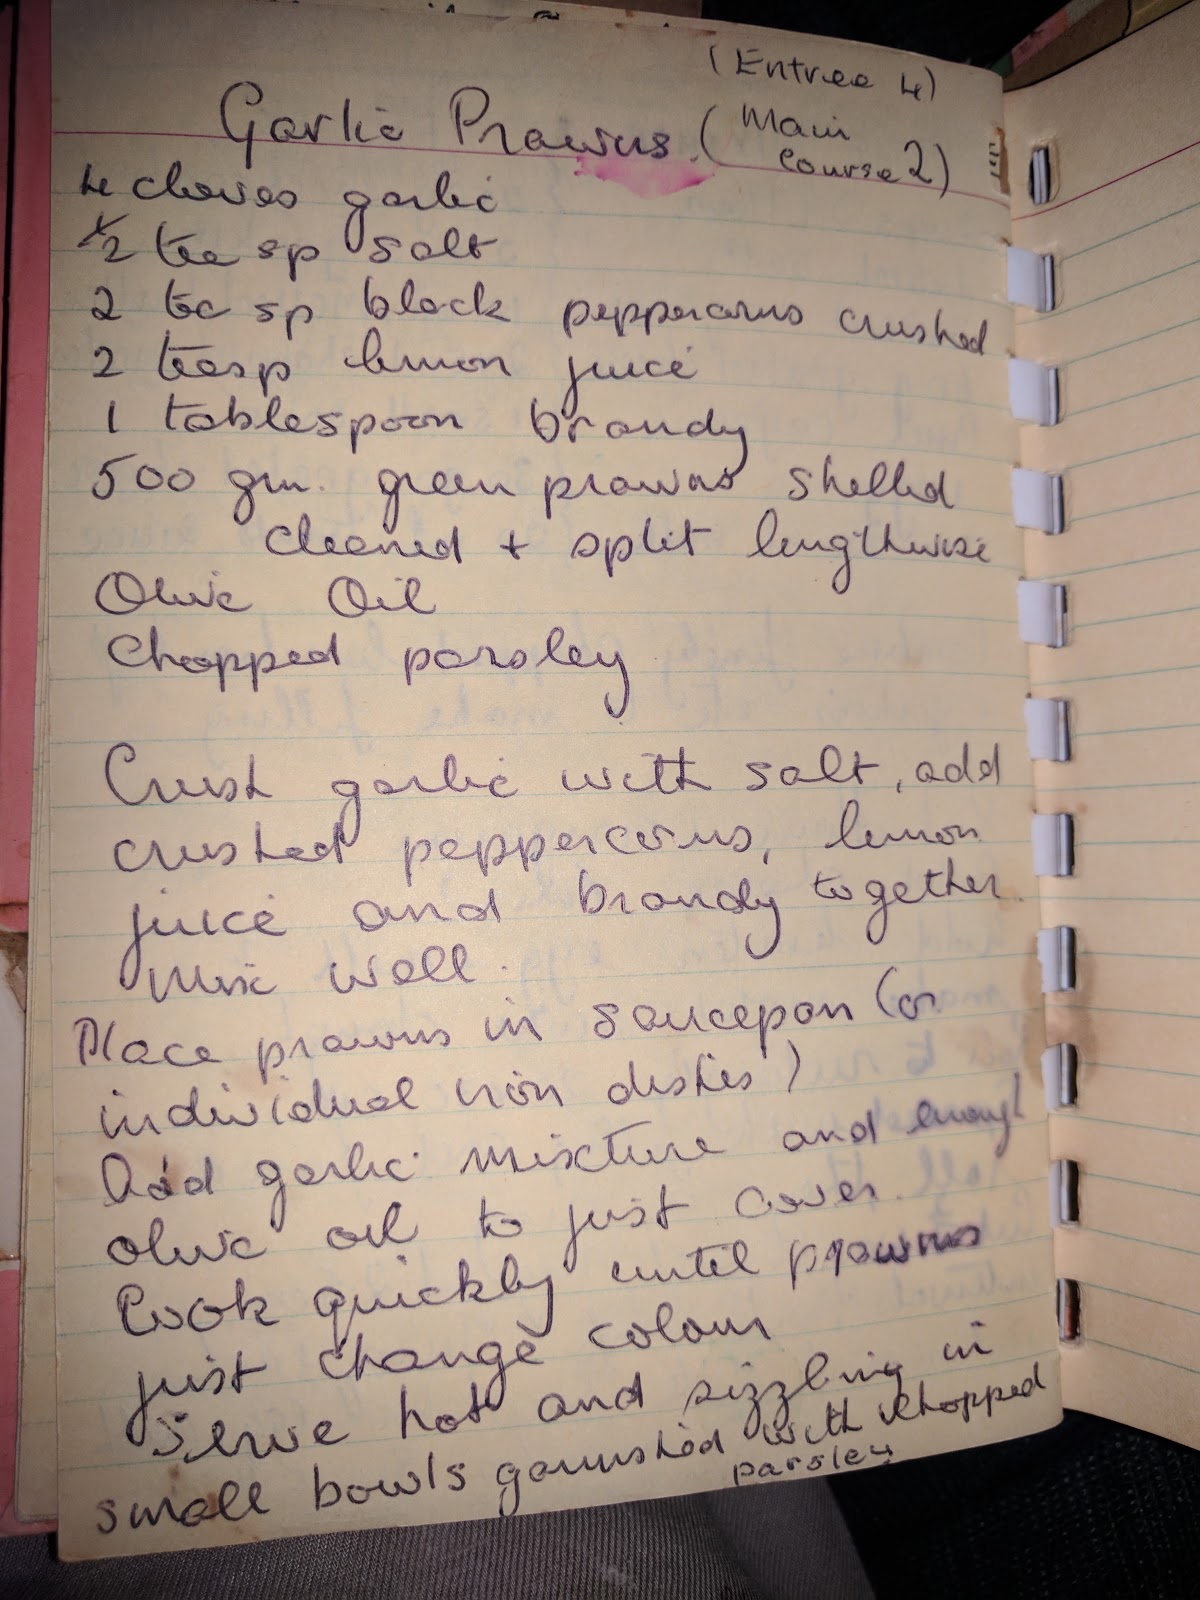 (Entree 4)
Garlic Prawns. (Main
course 2)
4 cloves garlic
1/2 tea sp salt
2 tea sp black peppercorns crushed
2 teasp lemon juice
1 tablespoon brandy
500 grm. green prawns shelled
cleaned + split lengthwise
Olive Oil
Chopped parsley
Crush garlic with salt, add
crushed peppercorns, lemon
juice and brandy together.
Mix well.
Place prawns in saucepan (or
individual iron dishes)
Add garlic mixture and enough
olive oil to just cover.
Cook quickly until prawns
just change colour
Serve hot and sizzling in
small bowls garnished with chopped
parsley